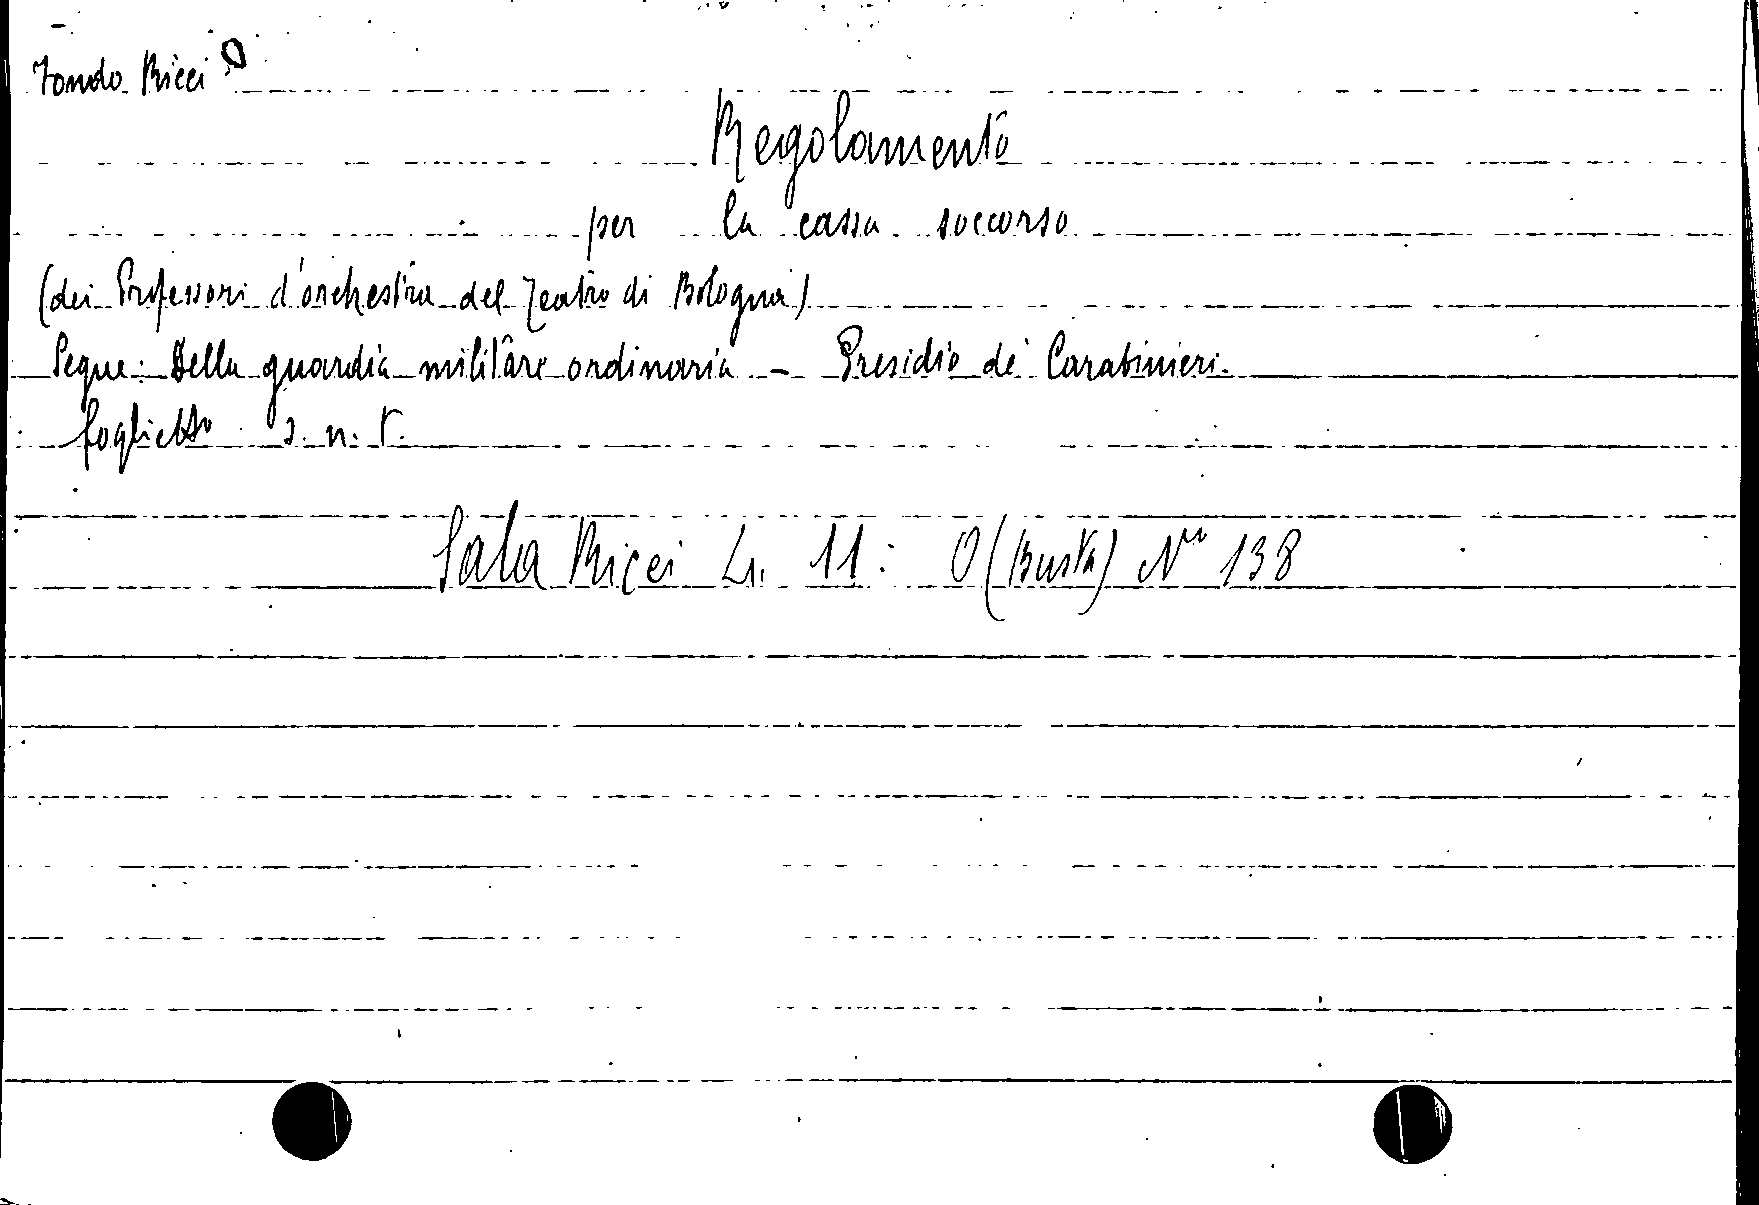 Fondo Ricci O
Regolamento
per la cassa soccorso
(dei Professori d'orchestra del Teatro di Bologna)
Segue: Della guardia militare ordinaria - Presidio de' Carabinieri.
foglietto s. n. t.
Sala Ricci L. 11: O (Busta) Nº 138